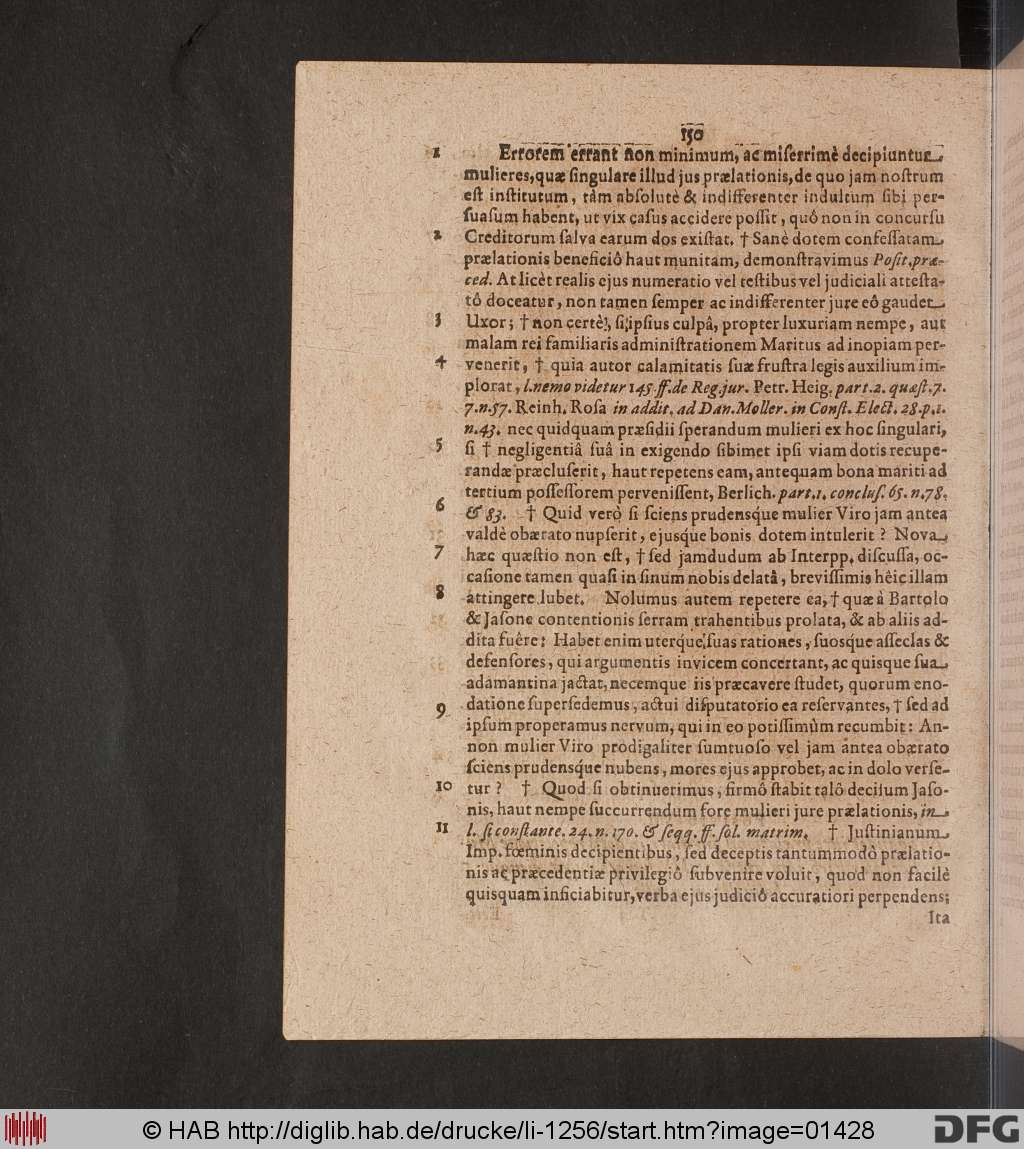 150
1 Errorem errant non minimum, ac miſerrimè decipiuntur
mulieres, quæ ſingulare illud jus prælationis, de quo jam noſtrum
eſt inſtitutum, tàm abſolutè & indifferenter indultum ſibi per-
ſuaſum habent, ut vix caſus accidere poſſit, quô non in concurſu
2 Creditorum ſalva earum dos exiſtat. † Sanè dotem confeſſatam
prælationis beneficiô haut munitam, demonſtravimus Poſit. præ-
ced. At licèt realis ejus numeratio vel teſtibus vel judiciali atteſta-
tô doceatur, non tamen ſemper ac indifferenter jure eô gaudet
3 Uxor; † non certè, ſi ipſius culpâ, propter luxuriam nempe, aut
malam rei familiaris adminiſtrationem Maritus ad inopiam per-
4 venerit, † quia autor calamitatis ſuæ fruſtra legis auxilium im-
plorat, l. nemo videtur 145. ff. de Reg. jur. Petr. Heig. part. 2. quæſt. 7.
7. n. 57. Reinh. Roſa in addit. ad Dan. Moller. in Conſt. Elect. 28. p. 1.
n. 43. nec quidquam præſidii ſperandum mulieri ex hoc ſingulari,
5 ſi † negligentiâ ſuâ in exigendo ſibimet ipſi viam dotis recupe-
randæ præcluſerit, haut repetens eam, antequam bona mariti ad
tertium poſſeſſorem perveniſſent, Berlich. part. 1. concluſ. 65. n. 78.
6 & 83. † Quid verò ſi ſciens prudensq́ue mulier Viro jam antea
valdè obærato nupſerit, ejusq́ue bonis dotem intulerit? Nova
7 hæc quæſtio non eſt, † ſed jamdudum ab Interpp. diſcuſſa, oc-
caſione tamen quaſi in ſinum nobis delatâ, breviſſimis hêic illam
8 attingere lubet. Nolumus autem repetere ea, † quæ à Bartolo
& Jaſone contentionis ſerram trahentibus prolata, & ab aliis ad-
dita fuêre: Habet enim uterque ſuas rationes, ſuosque aſſeclas &
defenſores, qui argumentis invicem concertant, ac quisque ſua
adamantina jactat, necemque iis præcavere ſtudet, quorum eno-
9 datione ſuperſedemus, actui diſputatorio ea reſervantes, † ſed ad
ipſum properamus nervum, qui in eo potiſſimùm recumbit: An-
non mulier Viro prodigaliter ſumtuoſo vel jam antea obærato
ſciens prudensq́ue nubens, mores ejus approbet, ac in dolo verſe-
10 tur? † Quod ſi obtinuerimus, firmô ſtabit talô deciſum Jaſo-
nis, haut nempe ſuccurrendum fore mulieri jure prælationis, in
11 l. ſi conſtante. 24. n. 170. & ſeqq. ff. ſol. matrim. † Juſtinianum
Imp. fœminis decipientibus, ſed deceptis tantummodò prælatio-
nis ac præcedentiæ privilegiô ſubvenire voluit, quod non facilè
quisquam inficiabitur, verba ejus judiciô accuratiori perpendens;
Ita
© HAB http://diglib.hab.de/drucke/li-1256/start.htm?image=01428
DFG